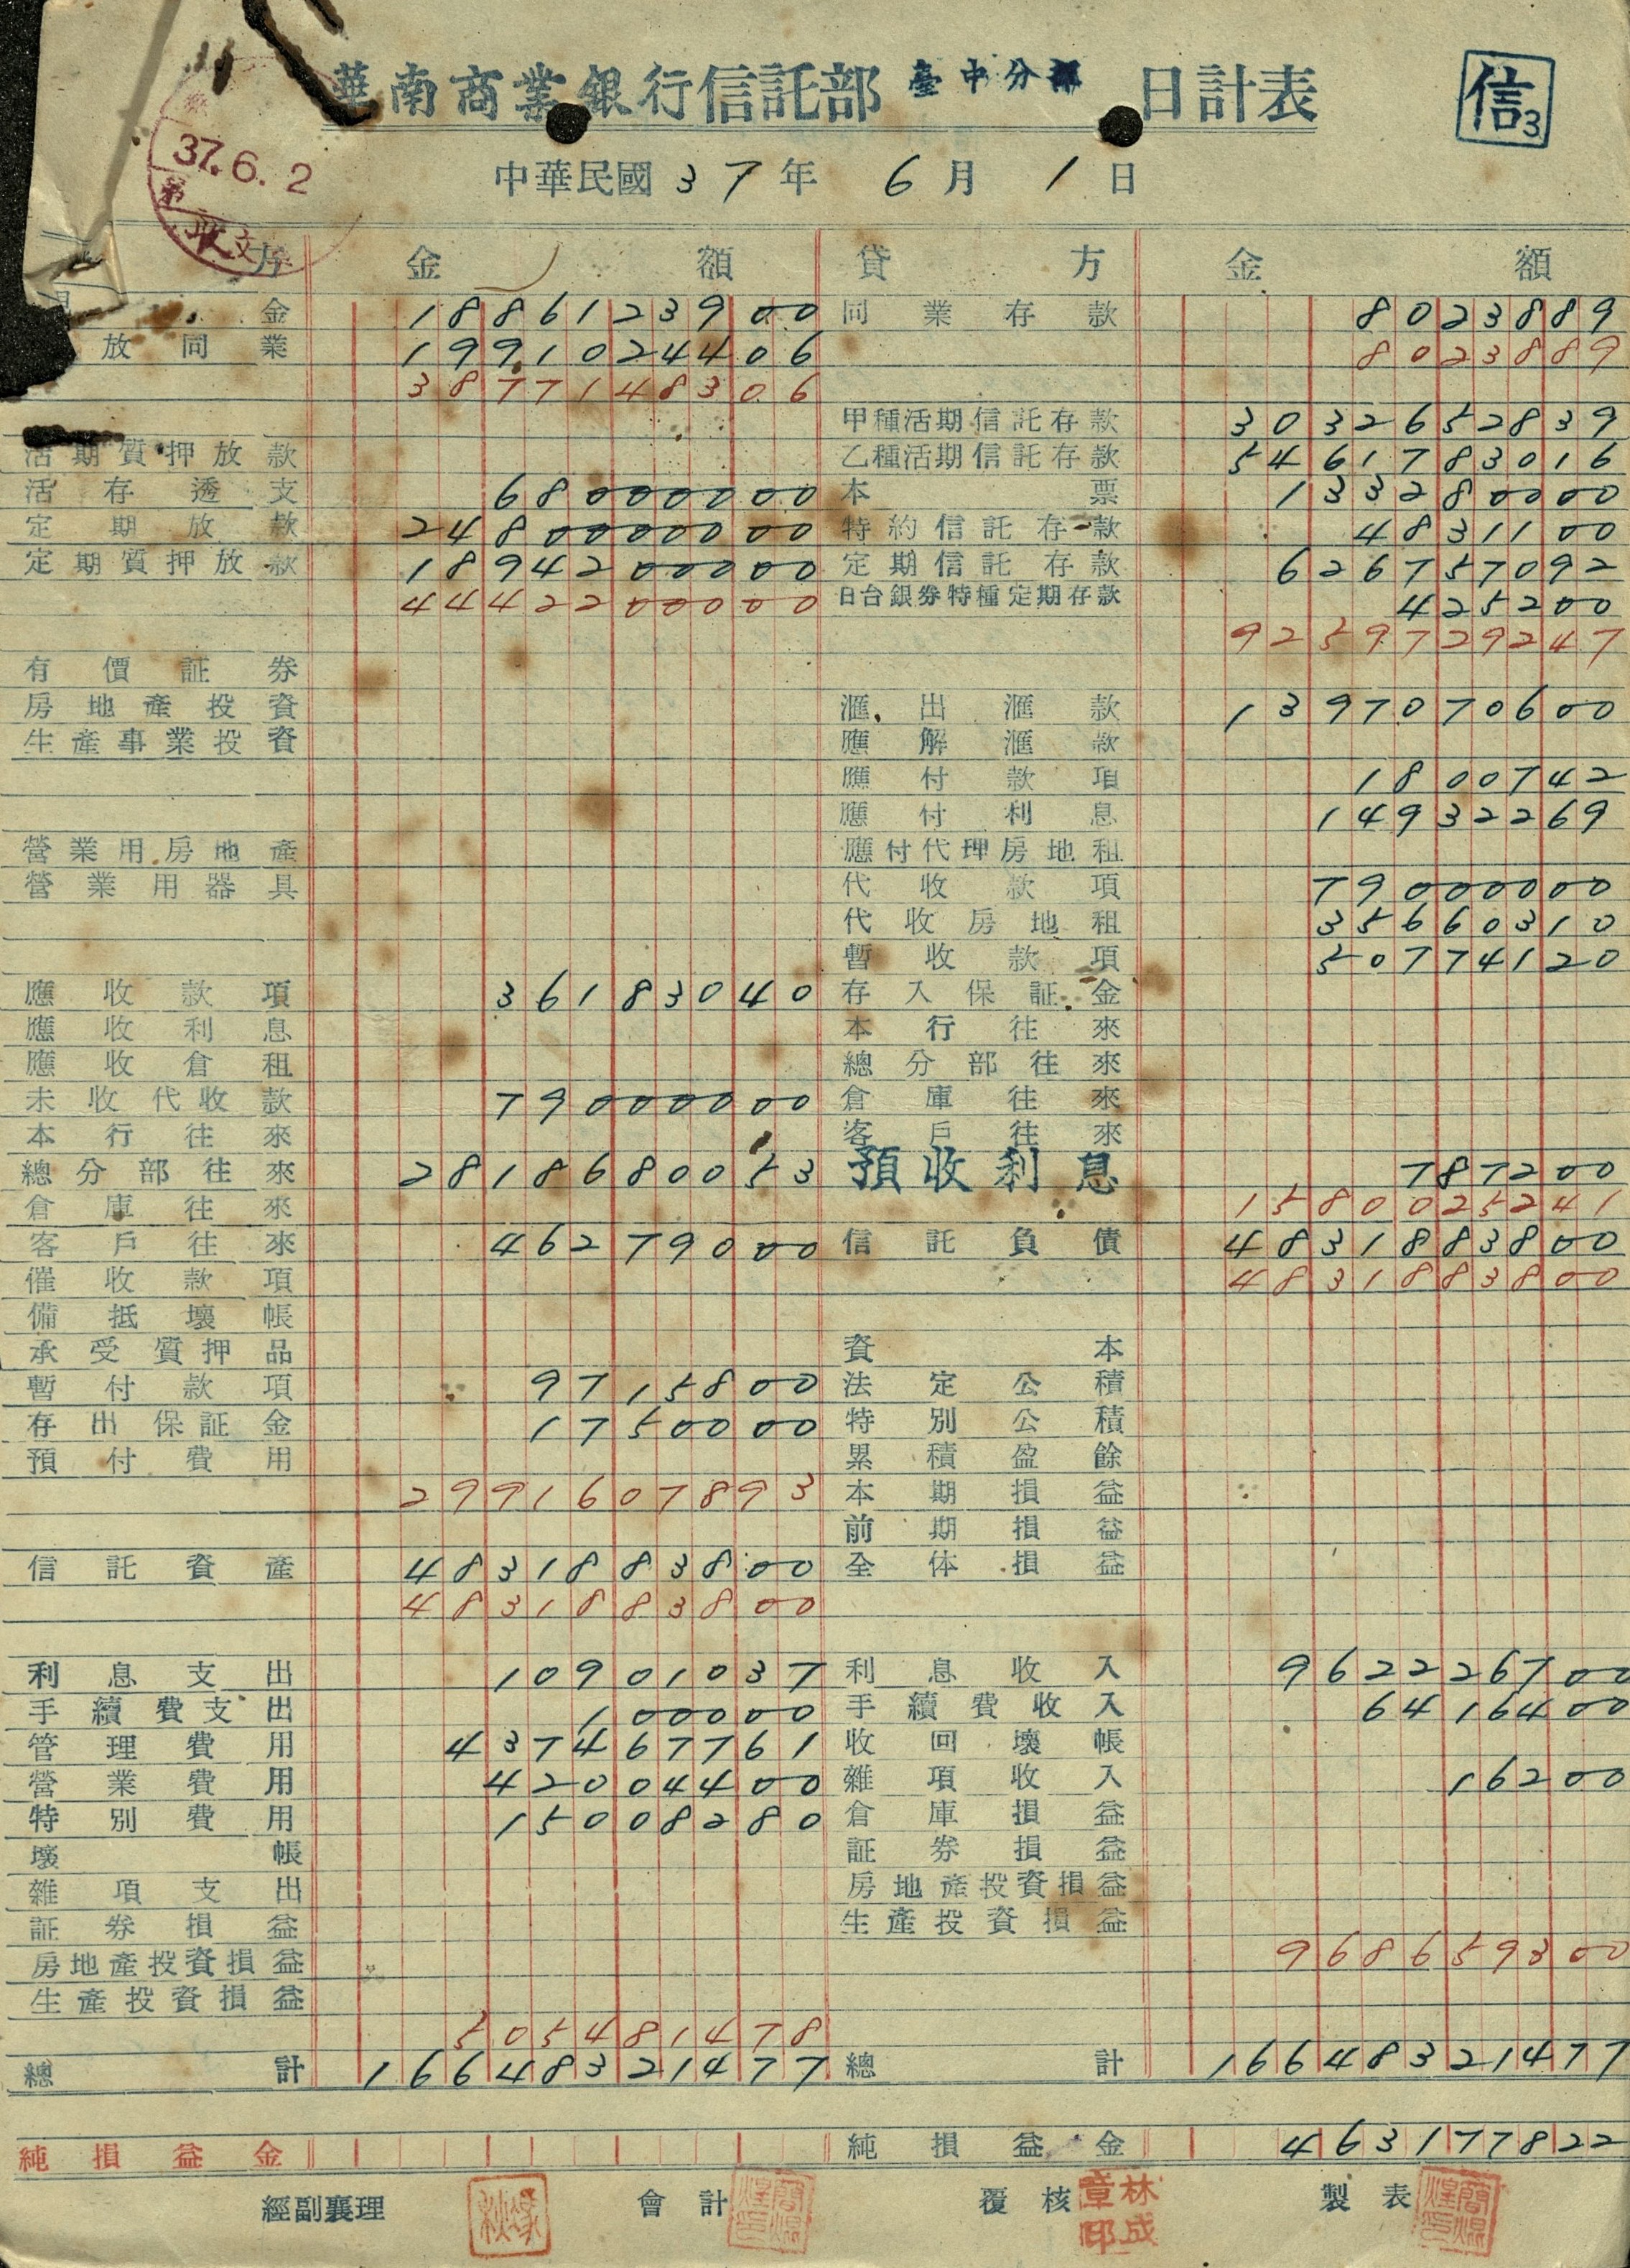 華南商業銀行信託部 臺中分部 日計表
信3
37.6.2
第
收文
中華民國 37 年 6 月 1 日
方 金 額 貸 方 金 額
金 1886123900 同業存款 8023889
放同業 1991024406 8023889
3877148306
甲種活期信託存款 3032652839
活期質押放款 乙種活期信託存款 5461783016
活存透支 68000000 本票 133280000
定期放款 2480000000 特約信託存款 4831100
定期質押放款 1894200000 定期信託存款 626757092
4442200000 日台銀券特種定期存款 425200
9259729247
有價証券
房地產投資 滙出滙款 1397070600
生產事業投資 應解滙款
應付款項 1800742
應付利息 14932269
營業用房地產 應付代理房地租
營業用器具 代收款項 79000000
代收房地租 35660310
暫收款項 50774120
應收款項 36183040 存入保証金
應收利息 本行往來
應收倉租 總分部往來
未收代收款 79000000 倉庫往來
本行往來 客戶往來
總分部往來 2818680053 預收利息 787200
倉庫往來 1580025241
客戶往來 46279000 信託負債 4831883800
催收款項 4831883800
備抵壞帳
承受質押品 資本
暫付款項 9715800 法定公積
存出保証金 1750000 特別公積
預付費用 累積盈餘
2991607893 本期損益
前期損益
信託資產 4831883800 全体損益
4831883800
利息支出 10901037 利息收入 962226700
手續費支出 100000 手續費收入 6416400
管理費用 437467761 收回壞帳
營業費用 42004400 雜項收入 16200
特別費用 15008280 倉庫損益
壞帳 証券損益
雜項支出 房地產投資損益
証券損益 生產投資損益
房地產投資損益 968659300
生產投資損益
505481478
總計 16648321477 總計 16648321477
純損益金 純損益金 463177822
經副襄理 會計 覆核 林成章印 製表